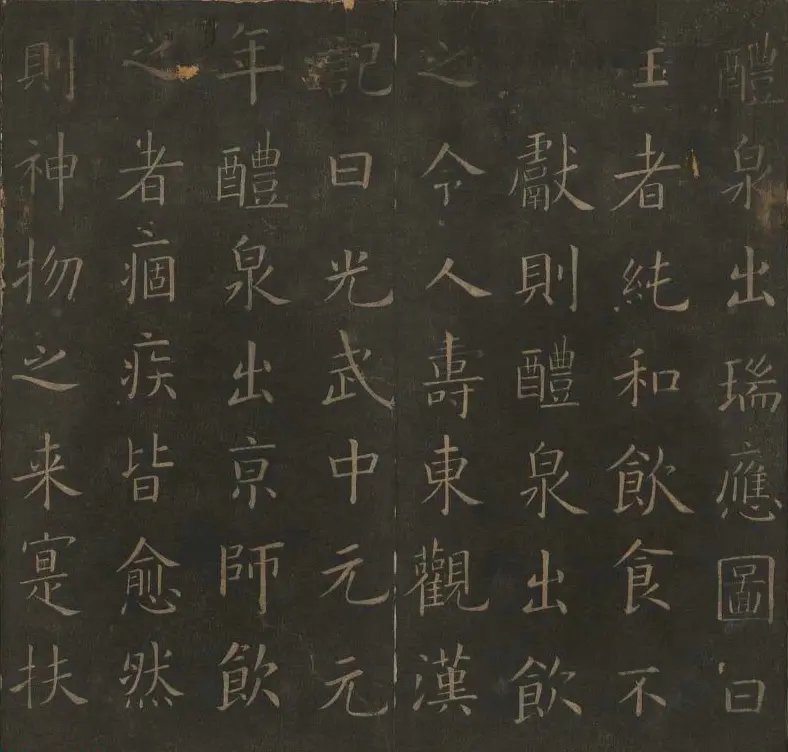 醴泉出瑞應圖曰
王者純和飲食不
獻則醴泉出飲
之令人壽東觀漢
記曰光武中元元
年醴泉出京師飲
之者痼疾皆愈然
則神物之来寔扶